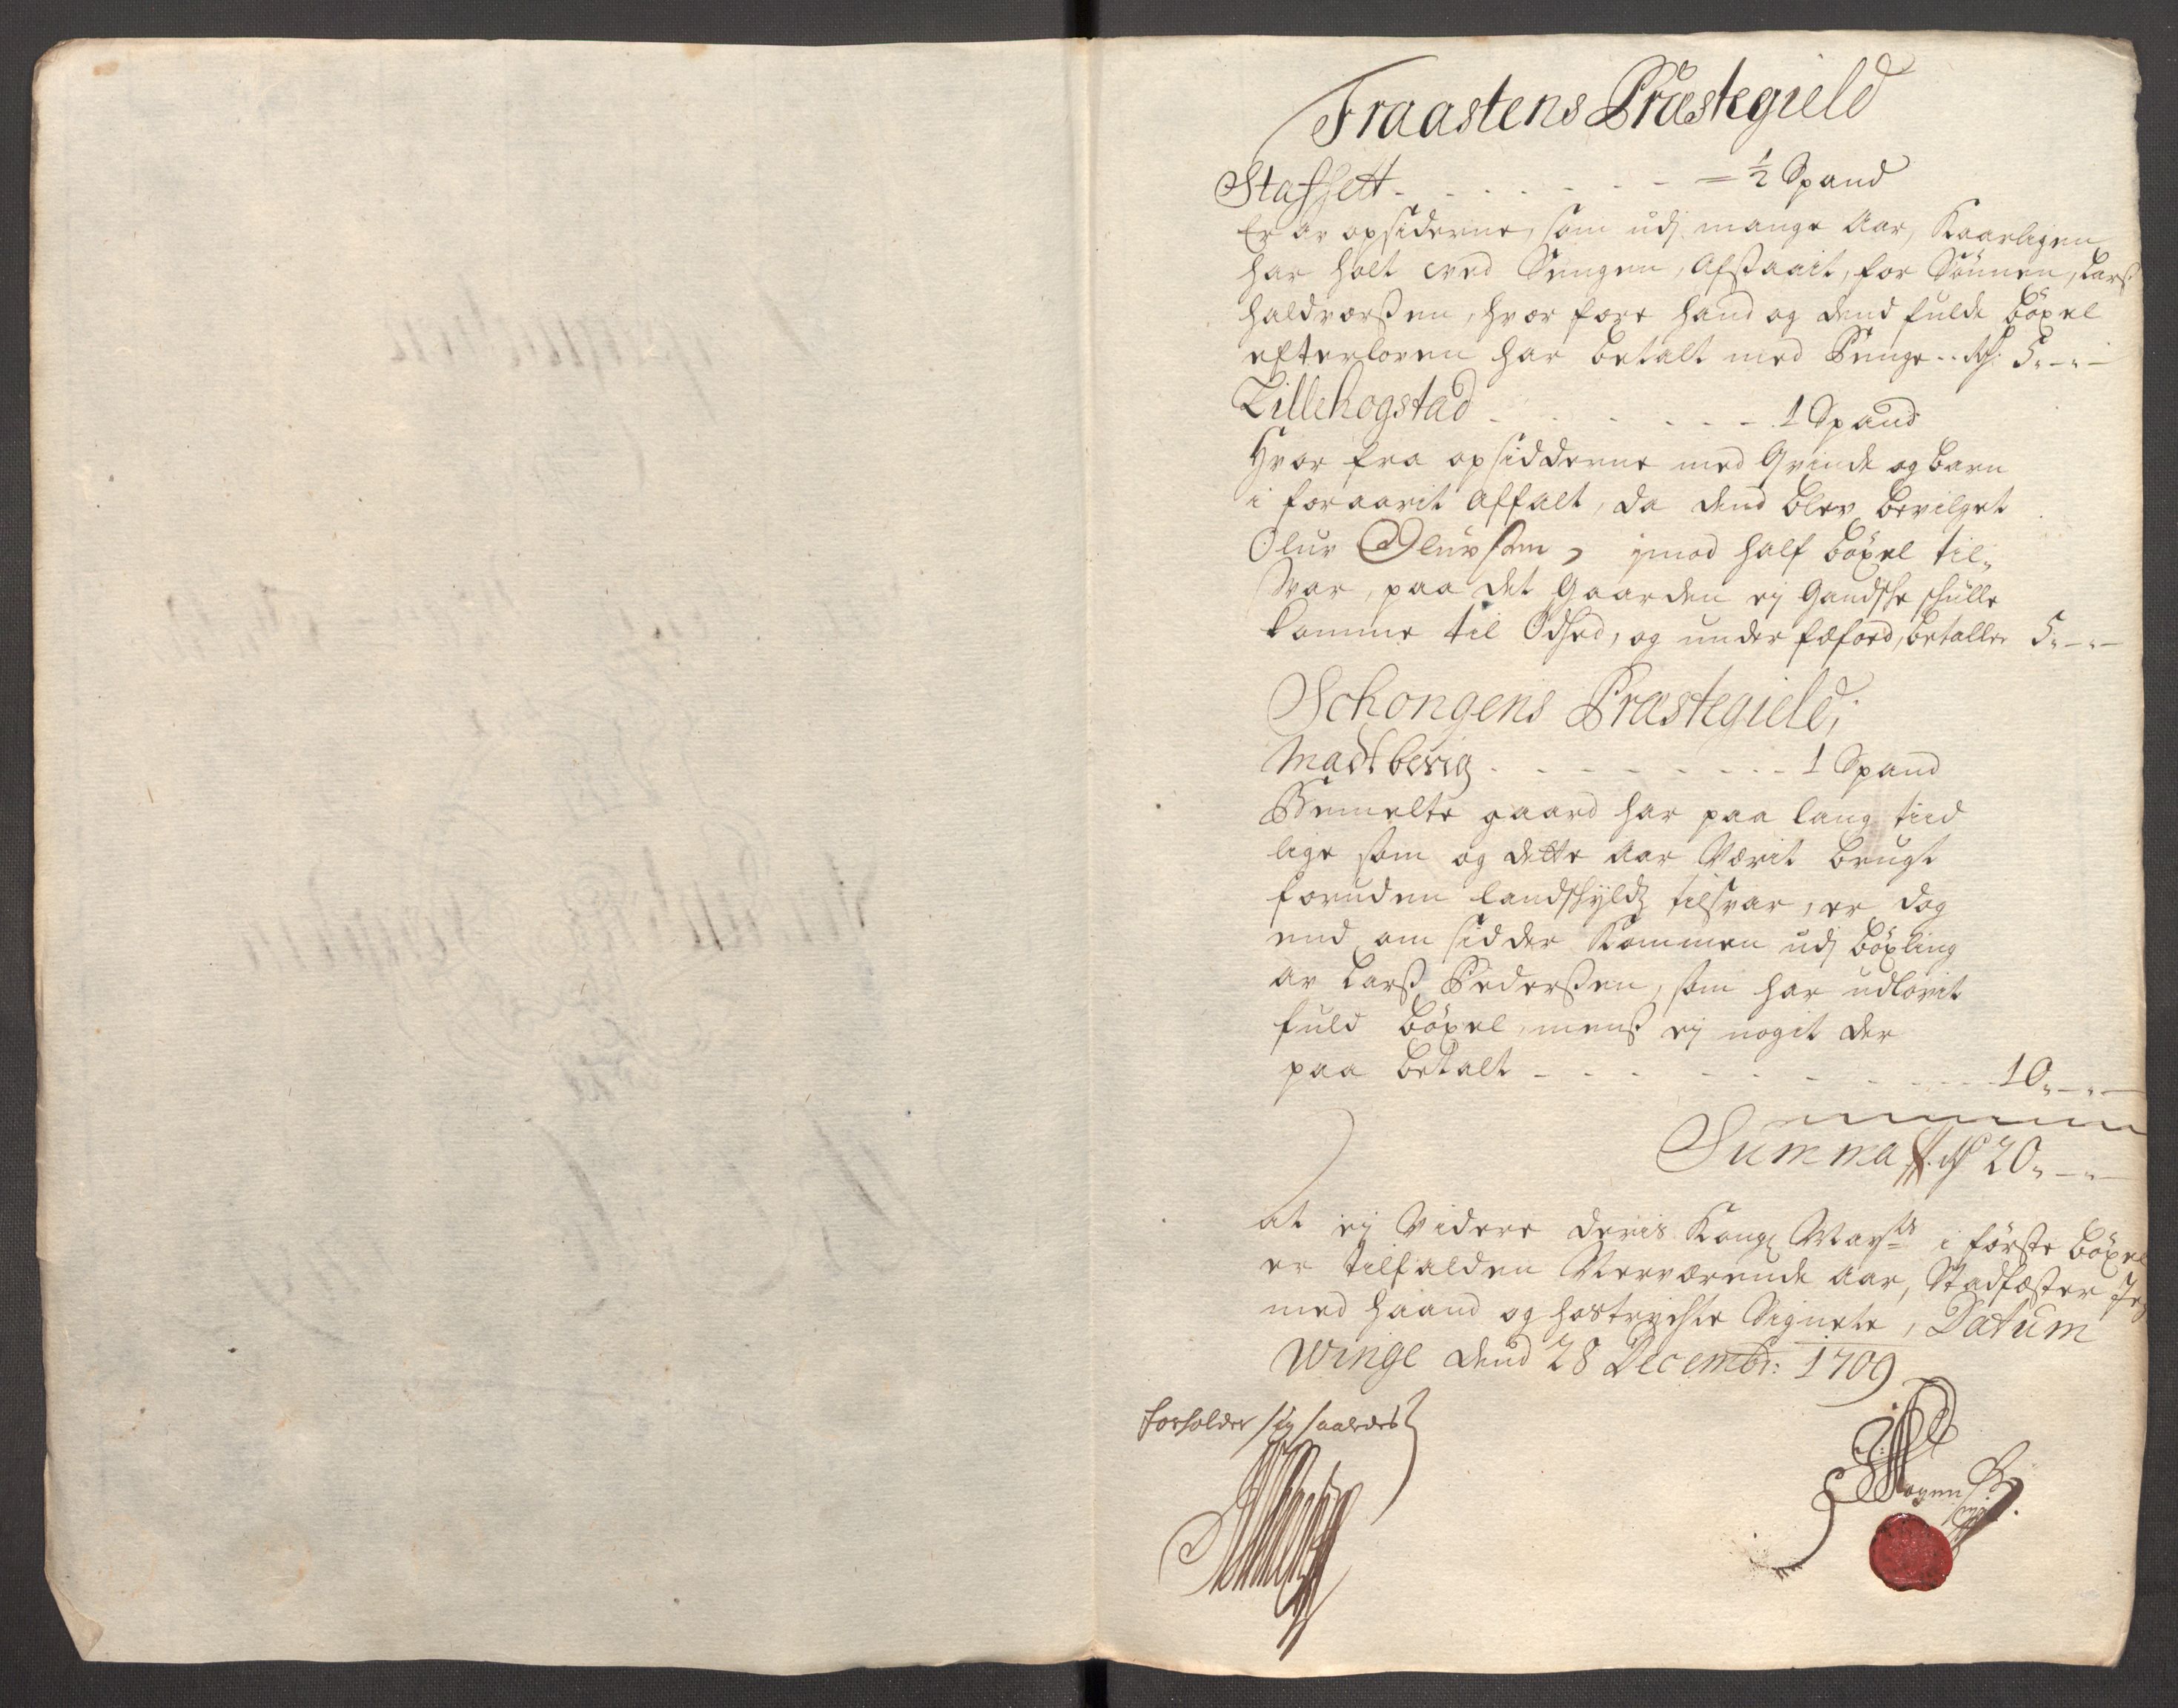 Fraastens Præstegield
Stafsett - - - - - - = ½ Spand
Er av opsiderne, som udj mange Aar, Kaarligen
har holt ved Sengen, Afstaait, for Sönnen, Lars
haldvorsßen, hvor fore hand og dend fulde böxel
efterloven har betalt med Penge - - Rd. 5„-„-
Lillehogstad - - - - - - 1 Spand
Hvor fra opsidderne med Qvinde og barn
i foraarit Affalt, da dend blev bevilget
Oluv Oluvsøn, ijmod half böxel til„
Svar, paa det Gaarden ej Gandsche schulle
komme til Ödhed, og under fæfoed, betaller 5„-„-
Schongens Præstegield;
Madtberig - - - - - - - - 1 Spand
Bemelte gaard har paa lang tiid
lige som og dette Aar Værit brugt
foruden landschyldz tilsvar, er dog
end om sidder Kommen udj böxling
av Larß Pederßen, som har udlovit
fuld böxel, menß ej nogit der
paa betalt - - - - - - - 10„-„-
Summa Rd 20„-„-
at ej Videre deris Kongl Mayts i förste böxel
er tilfalden Nerværende Aar, Stadfæster Jeg
med haand og hostrychte Signete, Datum
Winge dend 28 Decembr: 1709
forholder sig saaledes